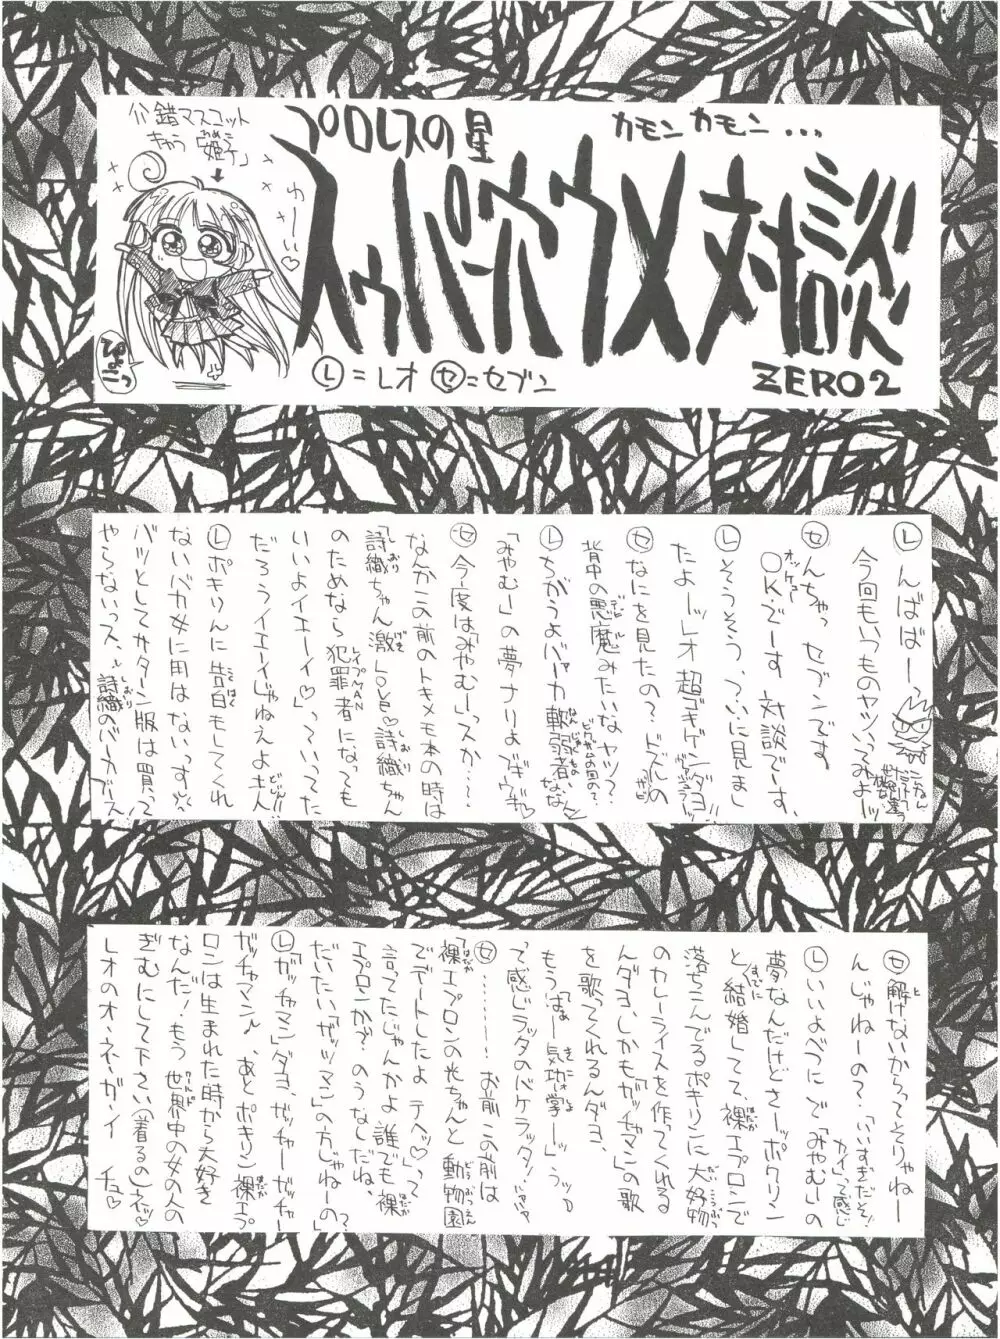 プロレスの星
カモン カモン...
マスコット
きゃら「姫子」
わーい♡
スゥパーヤウメ対談
ZERO2
Ⓛ=レオ ㋝=セブン
ぴょこっ
Ⓛんばばーっ
今回もいつものヤツいってみよーッ
㋝んちゃっ セブンです
OKでーす 対談でーす、
Ⓛそうそう、ついに見まし
たよーッレオ超ゴキゲンダヨ!!
㋝なにを見たの?ドズルの
背中の悪魔みたいなヤツ?
Ⓛちがうよバァーカ軟弱者、
「みやむー」の夢ナリよ
㋝今度は「みやむー」スか……
なんかこの前のトキメモ本の時は
「詩織ちゃん激LOVE♡詩織ちゃん
のためなら犯罪者になっても
いいよイエーイ♡」っていってた
だろうイエーイじゃねぇよ
Ⓛポキりんに告白もしてくれ
ないバカ女に用はないっす
バッとしてサターン版は買って
やらないっス、詩織のバーカ
㋝解けないからってそりゃねー
んじゃねーの?「いいすぎだぞ!
カイ」って感じ
Ⓛいいよべつにで「みやむー」の
夢なんだけどさーッポクリン
と、結婚してて、裸エプロンで
落ちこんでるポキりんに大好物
のカレーライスを作ってくれる
んダヨ、しかも「ガッチャマン」の歌
を歌ってくれるんダヨ、
もう「はぁー気功掌ーッ」うッ
って感じラッタのバケラッタ!
㋝………お前この前は
「裸エプロンの光ちゃんと動物園
でデートしたよ テヘッ♡」って
言ってたじゃんかよ誰でも裸
エプロンか?のうなしだね、
だいたい「ガッツマン」の方じゃねーの?」
Ⓛ「ガッチャマン」ダヨ、ガッチャー ガッチャー
ガッチャマン♪、あとポキりん裸エプ
ロンは生まれた時から大好き
なんだ!もう世界中の女の人の
ぎむにして下さい(着るの)ネッ♡
レオのオ・ネ・ガ・イ チュ♡